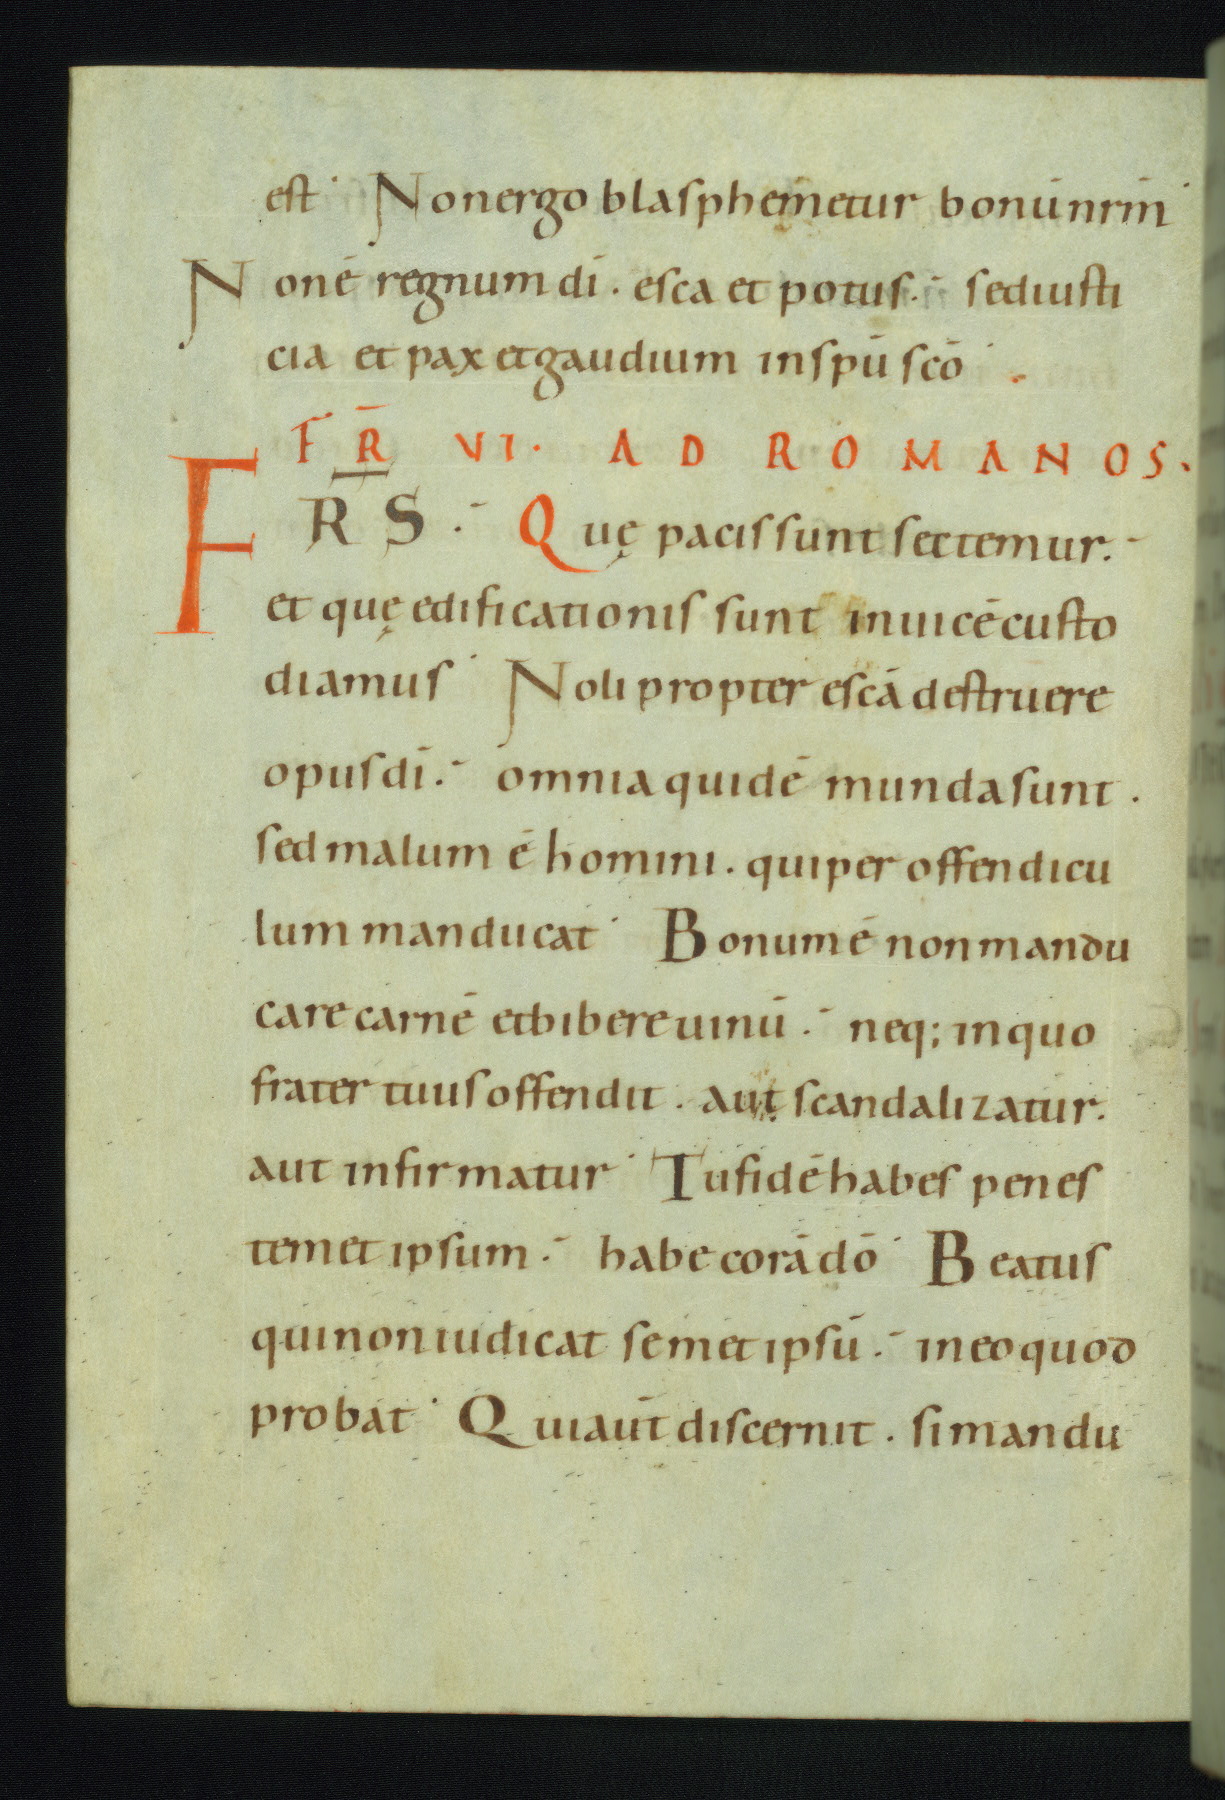 est· Non ergo blasphemetur bonū nrm̄·
Non ē regnum dī. esca et potus.͛ sed iusti
cia et pax et gaudium in spū scō·
FR̄ VI. AD ROMANOS.
FR̄S.͛ Quę pacis sunt sectemur.͛
et quę edificationis sunt inuicē custo
diamus· Noli propter escā destruere
opus dī.͛ omnia quidē munda sunt.
sed malum ē homini. qui per offendicu
lum manducat· Bonum ē non mandu
care carnē et bibere uinū.͛ neq; in quo
frater tuus offendit. aut scandalizatur.
aut infirmatur· Tu fidē habes penes
temet ipsum.͛ habe corā dō· Beatus
qui non iudicat semet ipsū.͛ in eo quod
probat· Qui aūt discernit. si mandu